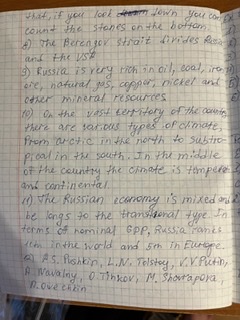 that, if you look down you can
count the stones on the bottom.
8) The Berengov strait divides Russia
and the USA
9) Russia is very rich in oil, coal, iron
ore, natural gas, copper, nickel and
other mineral resources
10) On the vast territory of the country
there are various types of climate,
from arctic in the north to subtro-
pical in the south. In the middle
of the country the climate is temperate
and continental.
11) The Russian economy is mixed and
be longs to the transitional type. In
terms of nominal GDP, Russia ranks
11th in the world and 5th in Europe.
12) A.S. Pushkin, L.N. Tolstoy, V.V. Putin,
A. Navalny, O. Tinkov, M. Sharapova,
A. Ovechkin